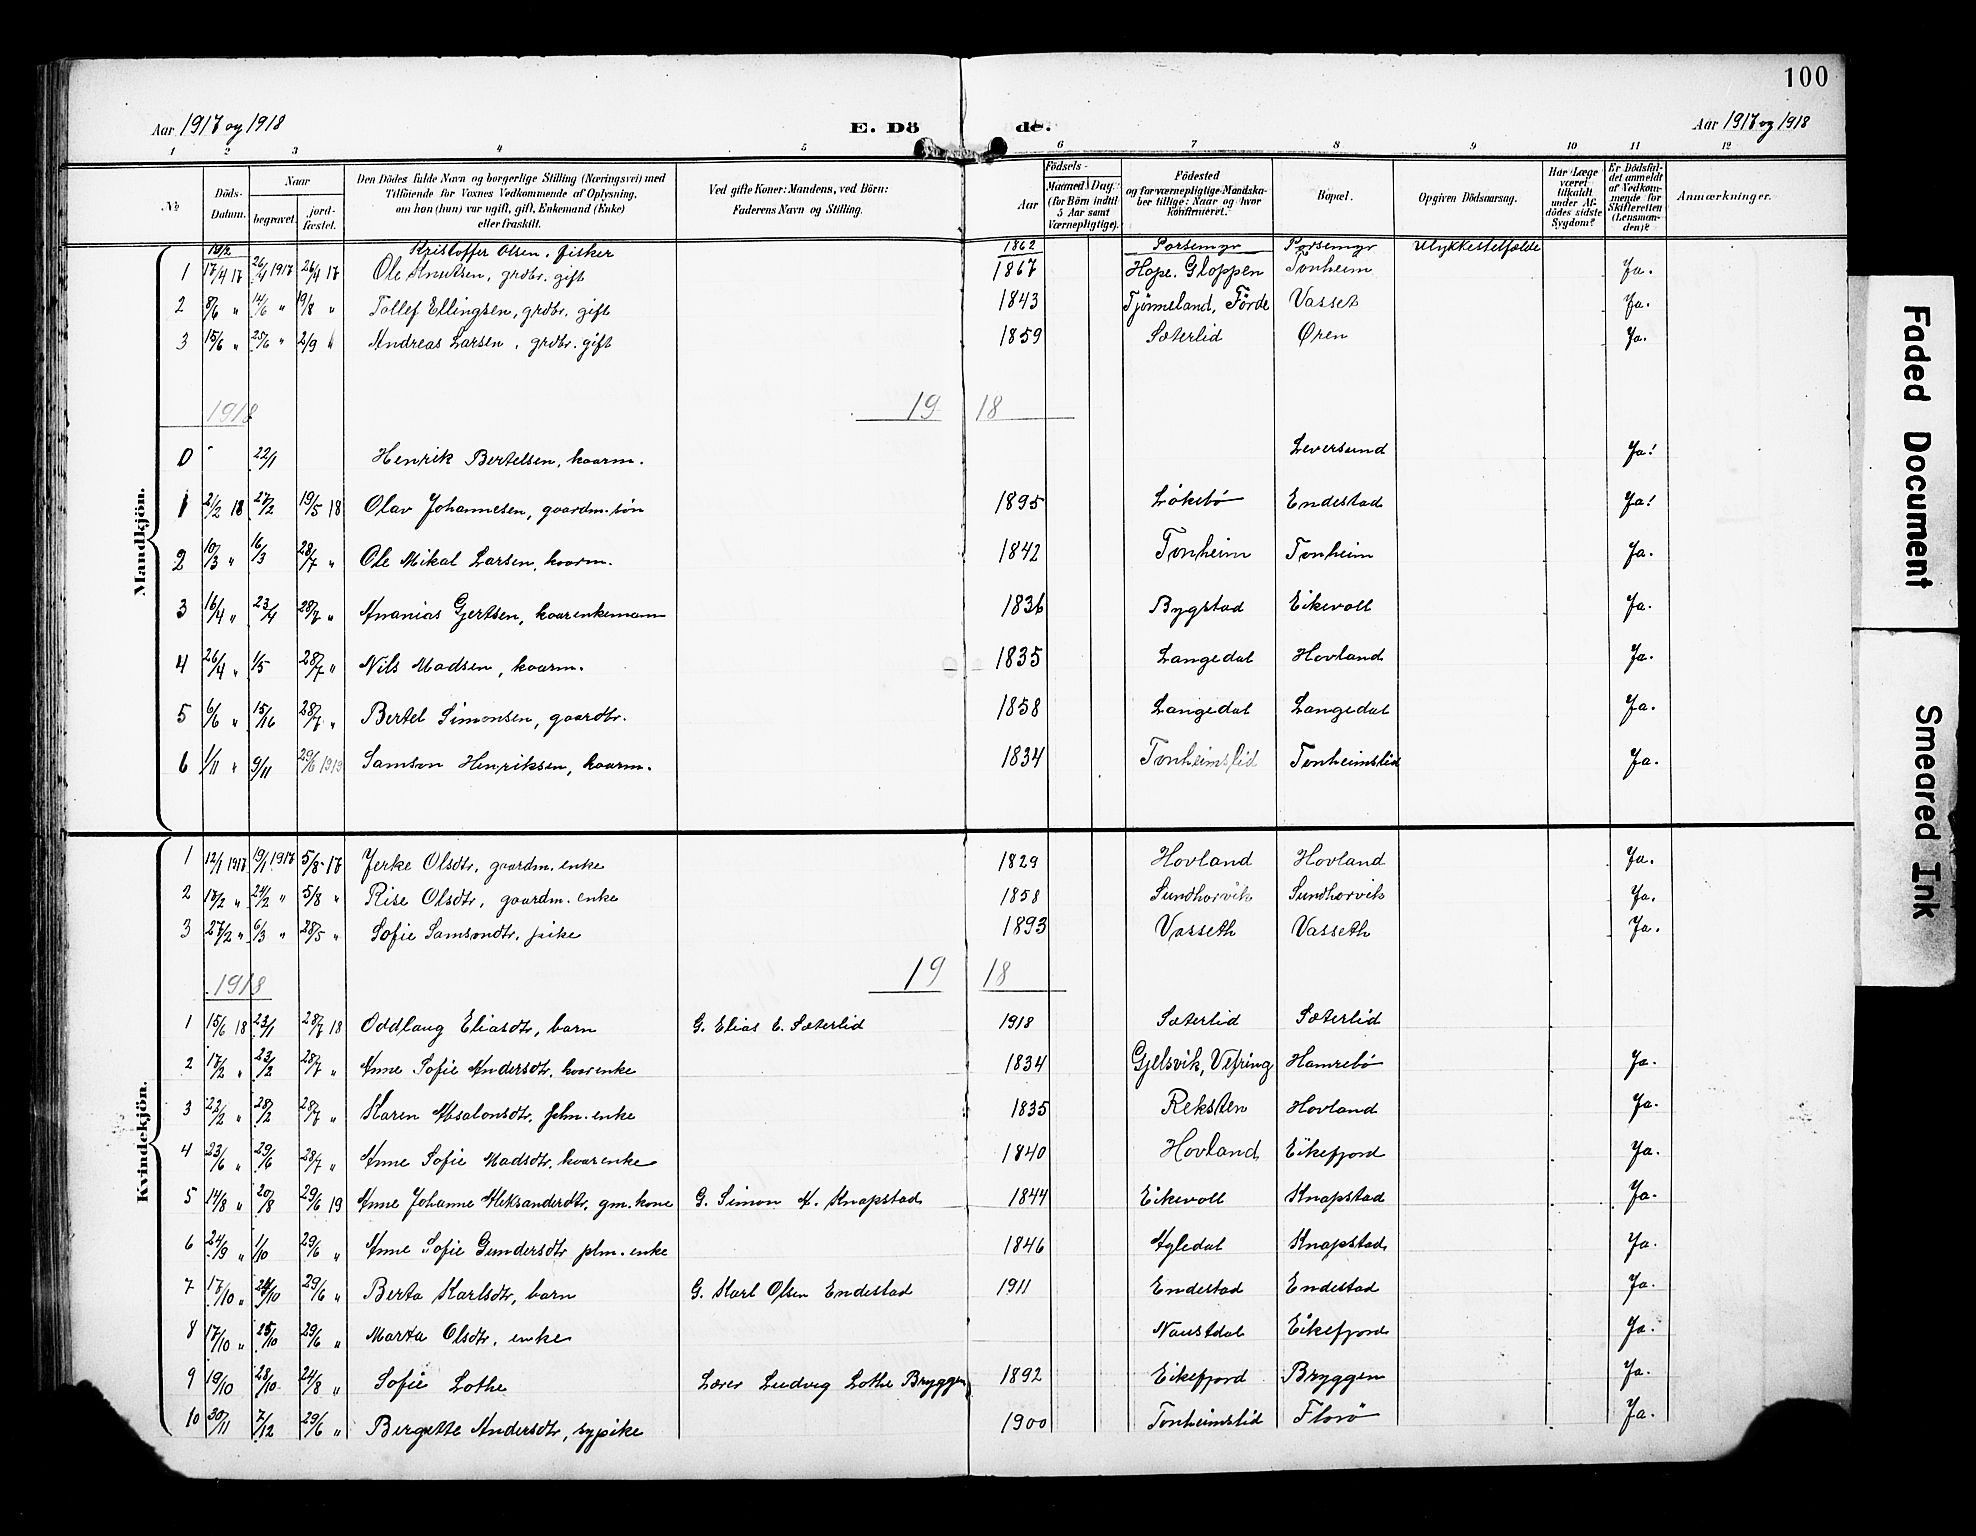 100
Aar 1917 og 1918 E. Dö de. Aar 1917 og 1918
1 2 3 4 5 6 7 8 9 10 11 12
No
Döds-Datum.
Naar
begravet.
jord-fæstet.
Den Dödes fulde Navn og borgerlige Stilling (Næringsvei) med
Tilföiende for Voxnes Vedkommende af Oplysning,
om han (hun) var ugift, gift, Enkemand (Enke)
eller fraskilt.
Ved gifte Koner: Mandens, ved Börn:
Faderens Navn og Stilling.
Födsels-
Aar
Maaned Dag.
(for Börn indtil
5 Aar samt
Værnepligtige).
Födested
og for værnepligtige Mandska-
ber tillige: Naar og hvor
Bopæl.
Opgiven Dödsaarsag.
Har Læge
været
tilkaldt
under Af-
dödes sidste
Sygdom?
Er Dödsfal-
det anmeldt
af Vedkom-
mende for
Skifteretten
(Lensman-
den)?
Anmærkninger.
Mandkjön.
Kristoffer Olsen, fisker 1862 Porsemyr Porsemyr Ulykkestilfælde
1 17/4 17 26/4 1917 26/4 17 Ole Knutsen, grdbr. gift 1867 Hope. Gloppen Tonheim Ja.
2 8/6 " 14/6 " 19/8 " Tollef Ellingsen, grdbr. gift 1843 Tjönneland, Förde Vasset Ja.
3 15/6 " 25/6 " 2/9 " Andreas Larsen, grdbr. gift 1859 Sæterlid Øren Ja.
1918 19 18
0 22/1 Henrik Bertelsen, kaarm. Leversund Ja!
1 2/2 18 27/2 19/5 18 Olav Johannesen, gaardm. sön 1895 Løkebø Endestad Ja!
2 10/3 " 16/3 28/7 " Ole Mikal Larsen, kaarm. 1842 Tonheim Tonheim Ja.
3 16/4 " 23/4 28/7 " Ananias Gjertsen, kaarenkemann 1836 Bygstad Eikevoll Ja.
4 26/4 " 1/5 28/7 " Nils Madsen, kaarm. 1835 Langedal Hovland Ja.
5 6/6 " 15/6 28/7 " Bertel Simonsen, gaardbr. 1858 Langedal Langedal Ja.
6 1/11 " 9/11 29/6 1919 Samson Henriksen, kaarm. 1834 Tonheimslid Tonheimslid Ja.
Kvindekjön.
1 12/1 1917 19/1 1917 5/8 17 Jerke Olsdtr, gaardm. enke 1829 Hovland Hovland Ja.
2 17/2 " 24/2 " 5/8 " Rise Olsdtr, gaardm. enke 1858 Sundhorvik Sundhorvik Ja.
3 27/2 " 6/3 " 28/5 " Sofie Samsondtr, pike 1893 Vasseth Vasseth Ja.
1918 19 18
1 18 23/1 28/7 18 Oddlaug Eliasdtr, barn G. Elias E. Sæterlid 1918 Sæterlid Sæterlid
2 17/2 " 23/2 28/7 " Anne Sofie Andersdtr, kaarenke 1834 Gjelsvik, Vefring Hamrebø Ja.
3 22/2 " 28/2 28/7 " Karen Absalonsdtr, plm. enke 1835 Reksten Hovland Ja.
4 23/6 " 29/6 28/7 " Anne Sofie Madsdtr, kaarenke 1840 Hovland Eikefjord Ja.
5 14/8 " 20/8 29/6 19 Anne Johanne Aleksanderdtr, gm. kone G. Simon A. Knapstad 1844 Eikevoll Knapstad Ja.
6 24/9 " 1/10 29/6 " Anne Sofie Gundersdtr plm. enke 1846 Agledal Knapstad Ja.
7 17/10 " 24/10 29/6 " Berta Karlsdtr, barn G. Karl Olsen Endestad 1911 Endestad Endestad Ja.
8 17/10 " 25/10 29/6 " Marta Olsdtr, enke Naustdal Eikefjord Ja.
9 19/10 28/10 24/8 " Sofie Lothe Lærer Ludvig Lothe Bryggen 1892 Eikefjord Bryggen Ja.
10 30/11 7/12 29/6 " Bergitte Andersdtr, sypike 1900 Tonheimslid Florö Ja.
Faded Document
Smeared Ink